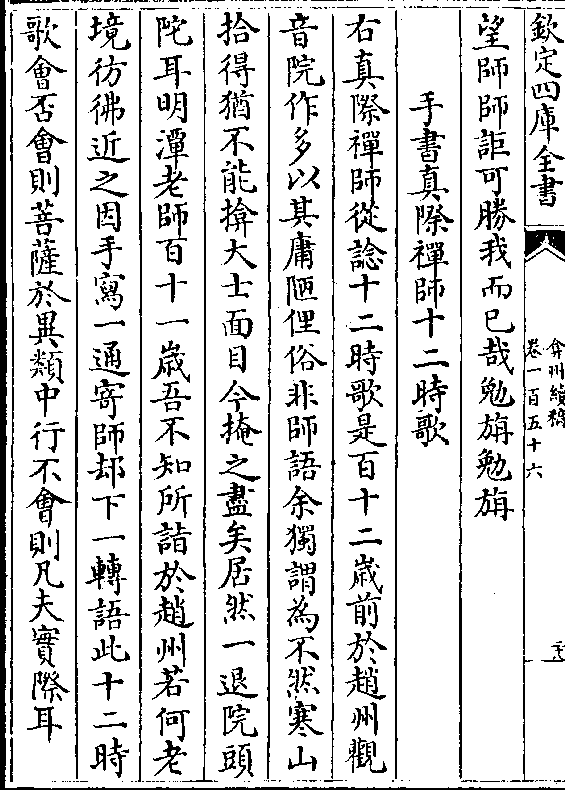 欽定四庫全書
弇州續稿
卷一百五十六
望師師詎可勝我而已哉勉旃勉旃
手書真際禪師十二時歌
右真際禪師從諗十二時歌是百十二歲前於趙州觀
音院作多以其庸陋俚俗非師語余獨謂為不然寒山
拾得猶不能揜大士面目今掩之盡矣居然一退院頭
陀耳明潭老師百十一歲吾不知所詣於趙州若何老
境彷彿近之因手寫一通寄師却下一轉語此十二時
歌會否會則菩薩於異類中行不會則凡夫實際耳